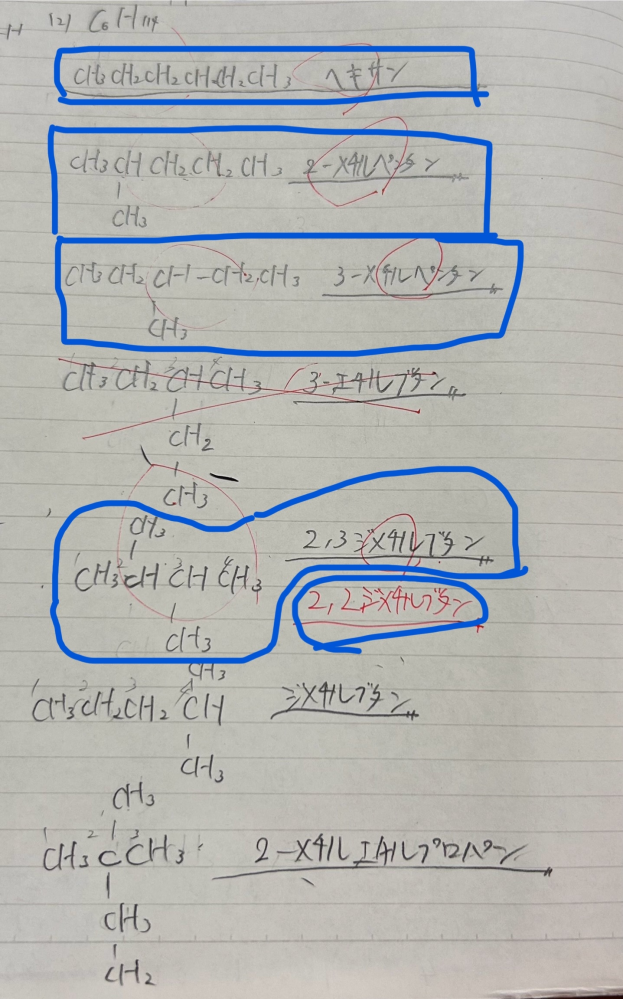 (2) C6H14
CH3CH2CH2CH2CH2CH3 ヘキサン
CH3CHCH2CH2CH3 2-メチルペンタン
CH3
CH3CH2CH-CH2CH3 3-メチルペンタン
CH3
CH3CH2CHCH3 3-エチルブタン
CH2
CH3
CH3
CH3CHCHCH3 2,3ジメチルブタン
2,2ジメチルブタン
CH3
CH3
CH3CH2CH2CH ジメチルブタン
CH3
CH3
CH3CCH3 2-メチルエチルプロパン
CH3
CH2